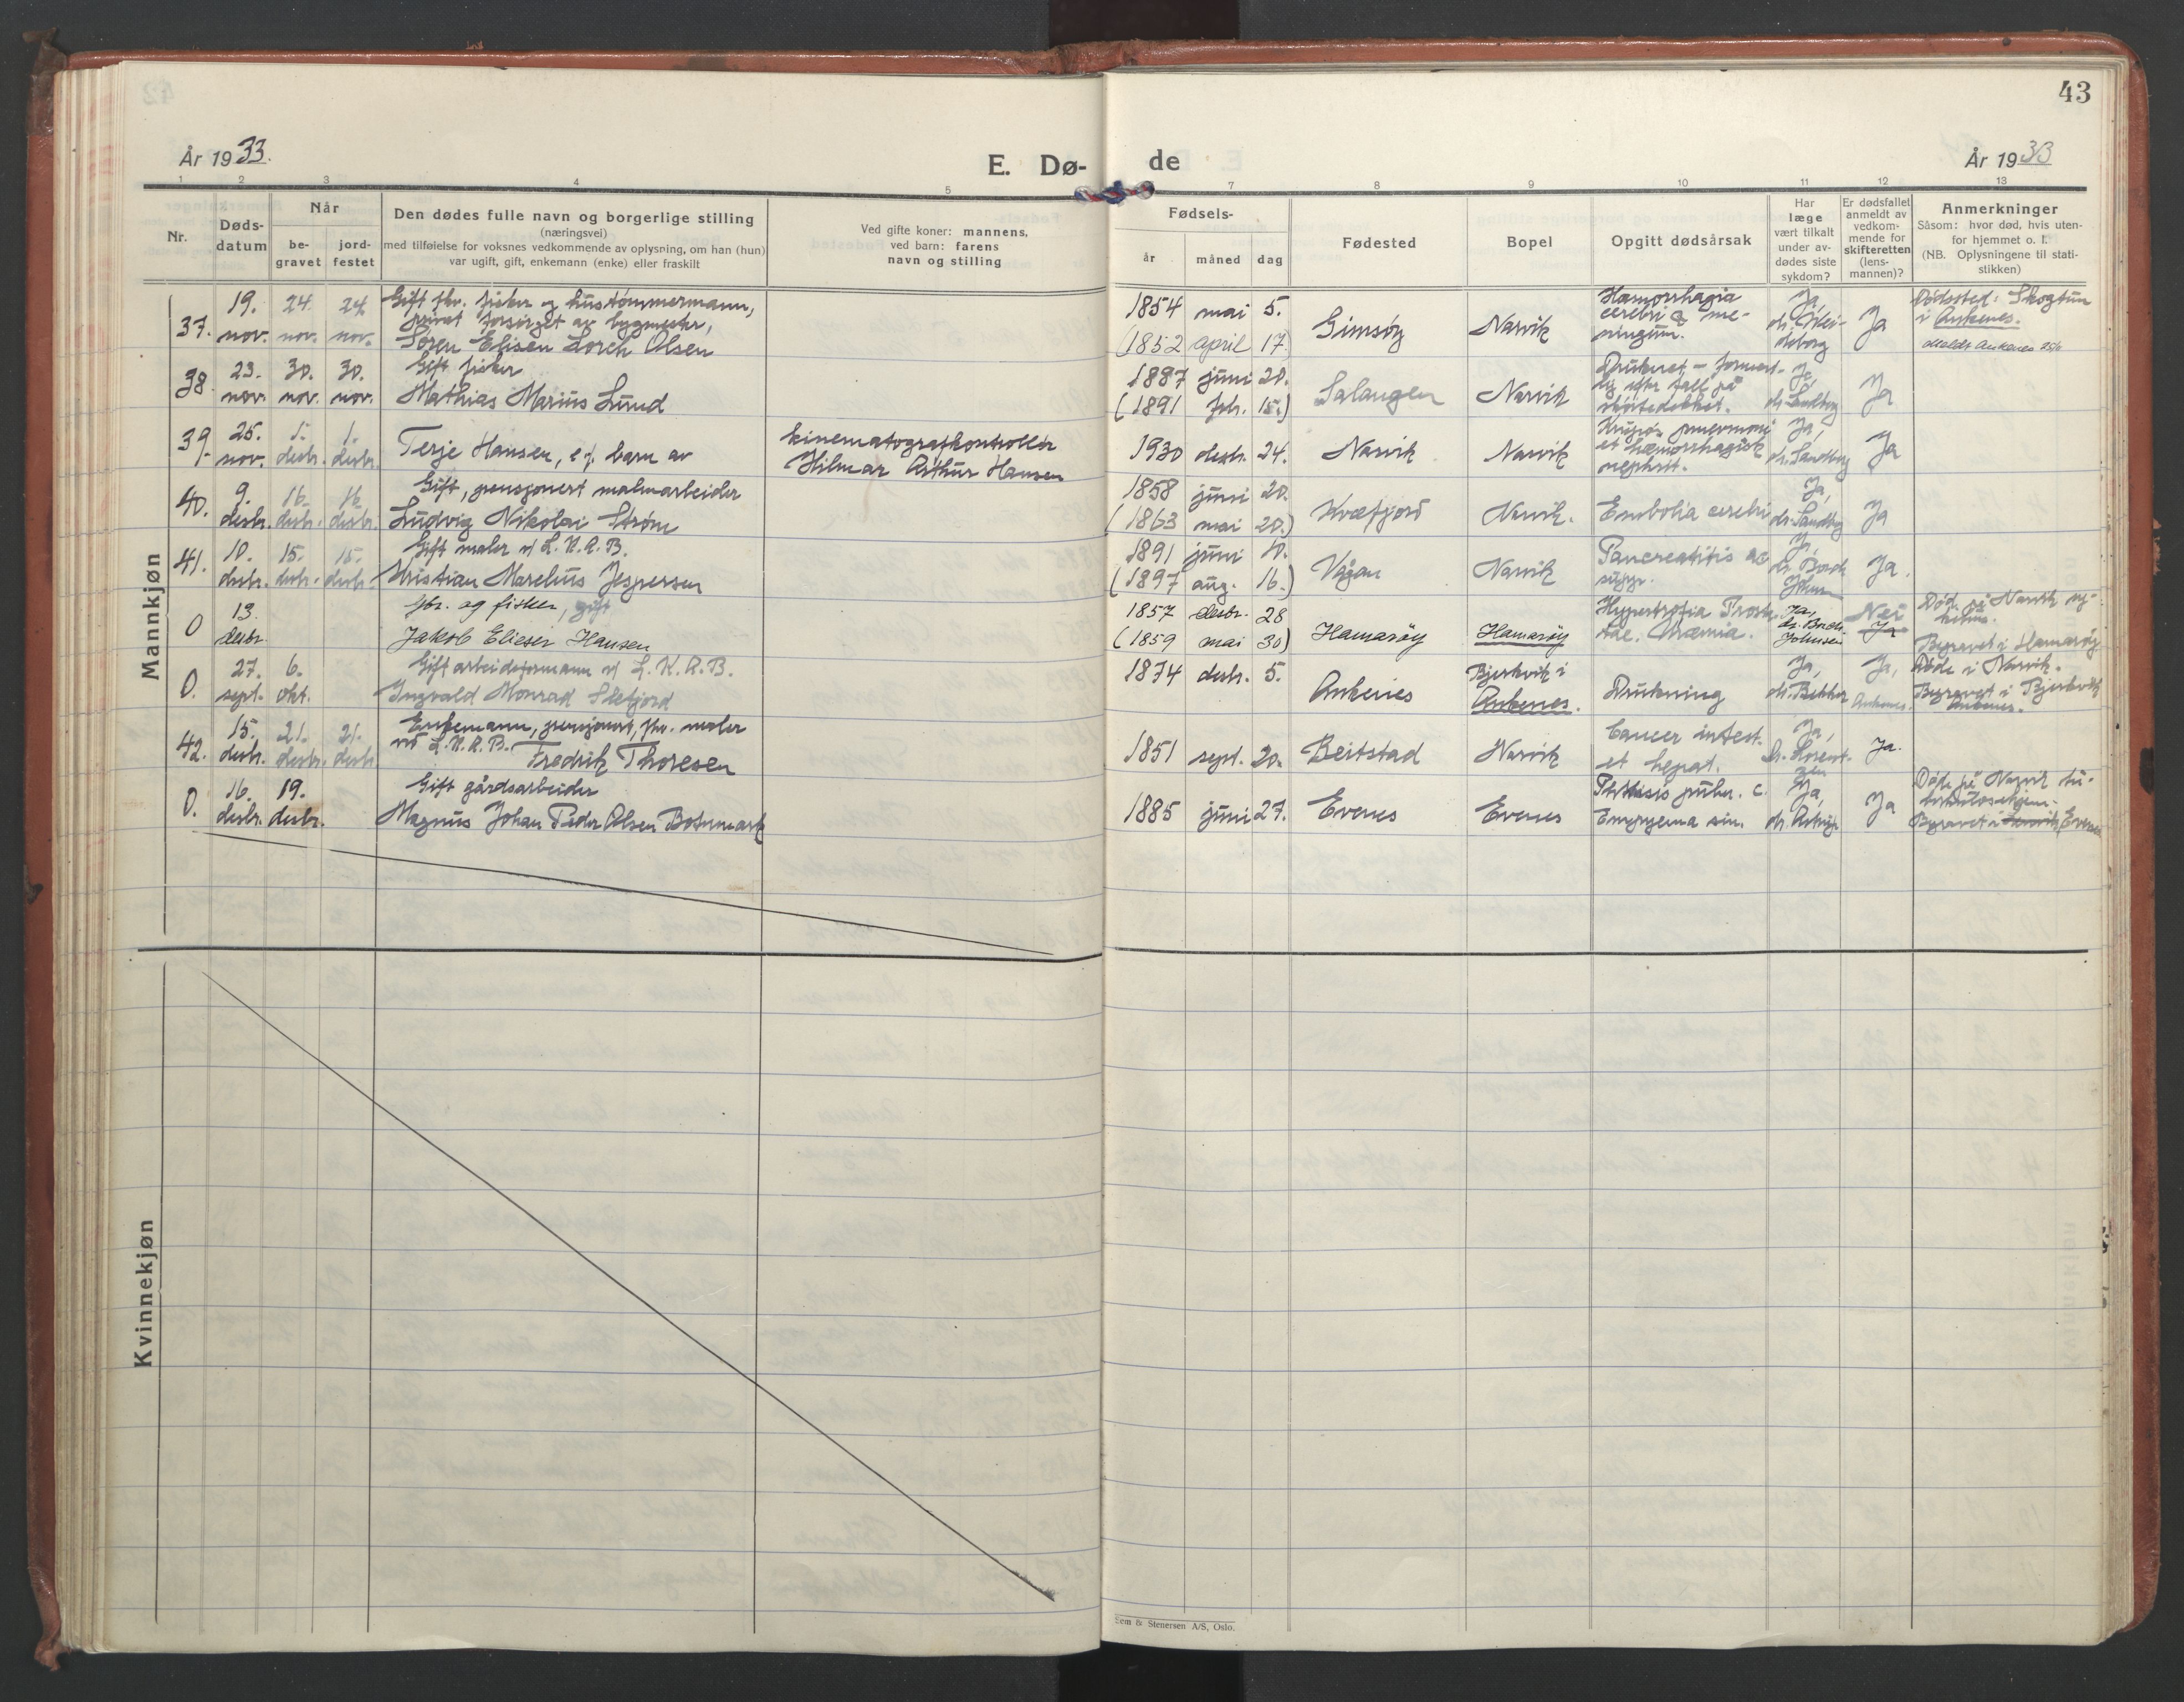 43
År 1933.
E. Dø-
de
År 1933
1 2 3 4 5 7 8 9 10 11 12 13
Nr.
Døds-
datum
Når
be-
gravet
jord-
festet
Den dødes fulle navn og borgerlige stilling
(næringsvei)
med tilføielse for voksnes vedkommende av oplysning, om han (hun)
var ugift, gift, enkemann (enke) eller fraskilt
Ved gifte koner: mannens,
ved barn: farens
navn og stilling
Fødsels-
år
måned
dag
Fødested
Bopel
Opgitt dødsårsak
Har
læge
vært tilkalt
under av-
dødes siste
sykdom?
Er dødsfallet
anmeldt av
vedkom-
mende for
skifteretten
(lens-
mannen)?
Anmerkninger
Såsom: hvor død, hvis uten-
for hjemmet o. l.
(NB. Oplysningene til stati-
stikken)
Mannkjøn
37. 19. nov. 24. nov. 24. nov.
Gift fhv. fisker og hustømmermann,
privat forsørget av bygmester,
Søren Elisen Lorch Olsen
1854 mai 5.
(1852 april 17.)
Gimsøy
Narvik
Hæmorrhagia
cerebri & me-
ningum.
Ja,
Ja
Dødssted: Skogtun
i Ankenes.
meldt Ankenes
38. 23. nov. 30. nov. 30. nov.
Gift fisker
Mathias Marius Lund
1887 juni 20.
(1891 febr. 15.)
Salangen
Narvik
Druknet - forment-
lig efter fall på
skøitedekket.
Ja,
dr. Sandberg
Ja
39. 25. nov. 1. desbr. 1. desbr.
Terje Hansen, e.f. barn av
kinematografkontrollør
Hilmar Arthur Hansen
1930 desbr. 24.
Narvik
Narvik
Krupøs pneumoni
et hæmorrhagisk
nephrit.
Ja,
dr. Sandberg
Ja
40. 9. desbr. 16. desbr. 16. desbr.
Gift, pensjonert malmarbeider
Ludvig Nikolai Strøm
1858 juni 20.
(1863 mai 20.)
Kvæfjord
Narvik.
Embolia cerebri
Ja,
dr. Sandberg
Ja
41. 10. desbr. 15. desbr. 15. desbr.
Gift maler v/ L.K.A.B.
Kristian Marelius Jespersen
1891 juni 10.
(1897 aug. 16.)
Vågan
Narvik
Pancreatitis ac
supp.
Ja,
dr. Borch
Johnsen
Ja.
0 13. desbr.
gbr. og fisker, gift
Jakob Elieser Hansen
1857 desbr. 28
(1859 mai 30)
Hamarøy
Hamarøy
Hypertrofia Prosta-
tae. Uræmia.
Ja,
dr. Borch
Johnsen
Nei
Ja
Død på Narvik sy-
kehus.
Begravet i Hamarøy
0. 27. sept. 6. okt.
Gift arbeidsformann v/ L.K.A.B.
Ingvald Monrad Slefjord
1874 desbr. 5.
Ankenes
Bjerkvik i
Ankenes.
Drukning
Ja,
Ja,
Ankenes.
Døde i Narvik.
Begravet i Bjerkvik
Ankenes.
42. 15. desbr. 21. desbr. 21. desbr
Enkemann, pensjonert, fhv. maler
ved L.K.A.B. Fredrik Thoresen
1851 sept. 20.
Beitstad
Narvik
Cancer intest.
et hepat.
Ja,
Ja.
0. 16. desbr. 19. desbr.
Gift gårdsarbeider
Magnus Johan Peder Olsen Botnmark
1885 juni 27.
Evenes
Evenes
Phthisis pulm. c.
Empyema sin.
Ja,
Ja
Døde på Narvik tu-
berkulosehjem.
Begravet i Evenes
Kvinnekjøn
Sem & Stenersen A/S, Oslo.